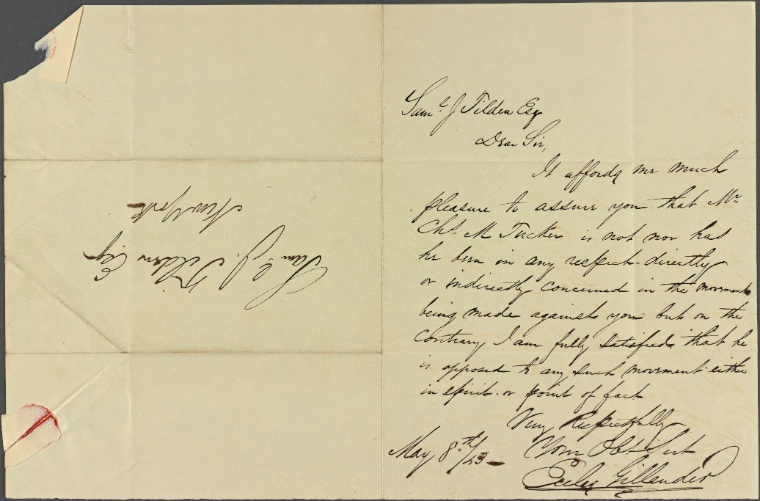 Saml. J. Tilden Esq
New York
Saml. J Tilden Esq
Dear Sir,
It affords me much
pleasure to assure you that Mr
Chs. M Tucker is not nor has
he been in any respect directly
or indirectly concerned in the movement
being made against you but on the
contrary I am fully satisfied that he
is opposed to any such movement either
in spirit or point of fact
Very Respectfully
Your Obt Svt
May 8th/43
Gillender